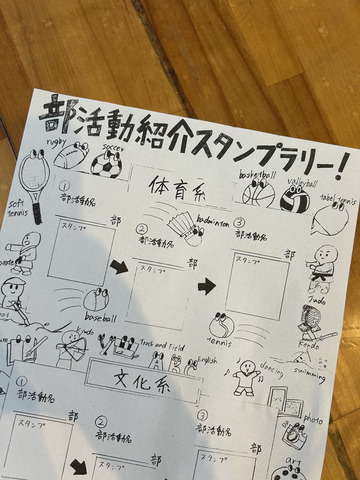 部活動紹介スタンプラリー!
rugby
soccer
体育系
basketball
volleyball
tabel tennis
soft tennis
① 部活動名
部
スタンプ
② 部活動名
部
スタンプ
badminton
③ 部活動名
部
スタンプ
Judo
baseball
tennis
Kendo
swimming
kyudo
Track and Field
English
dancing
文化系
photo
art
① 部活動名
部
スタンプ
② 部活動名
部
スタンプ
③ 部活動名
部
スタンプ